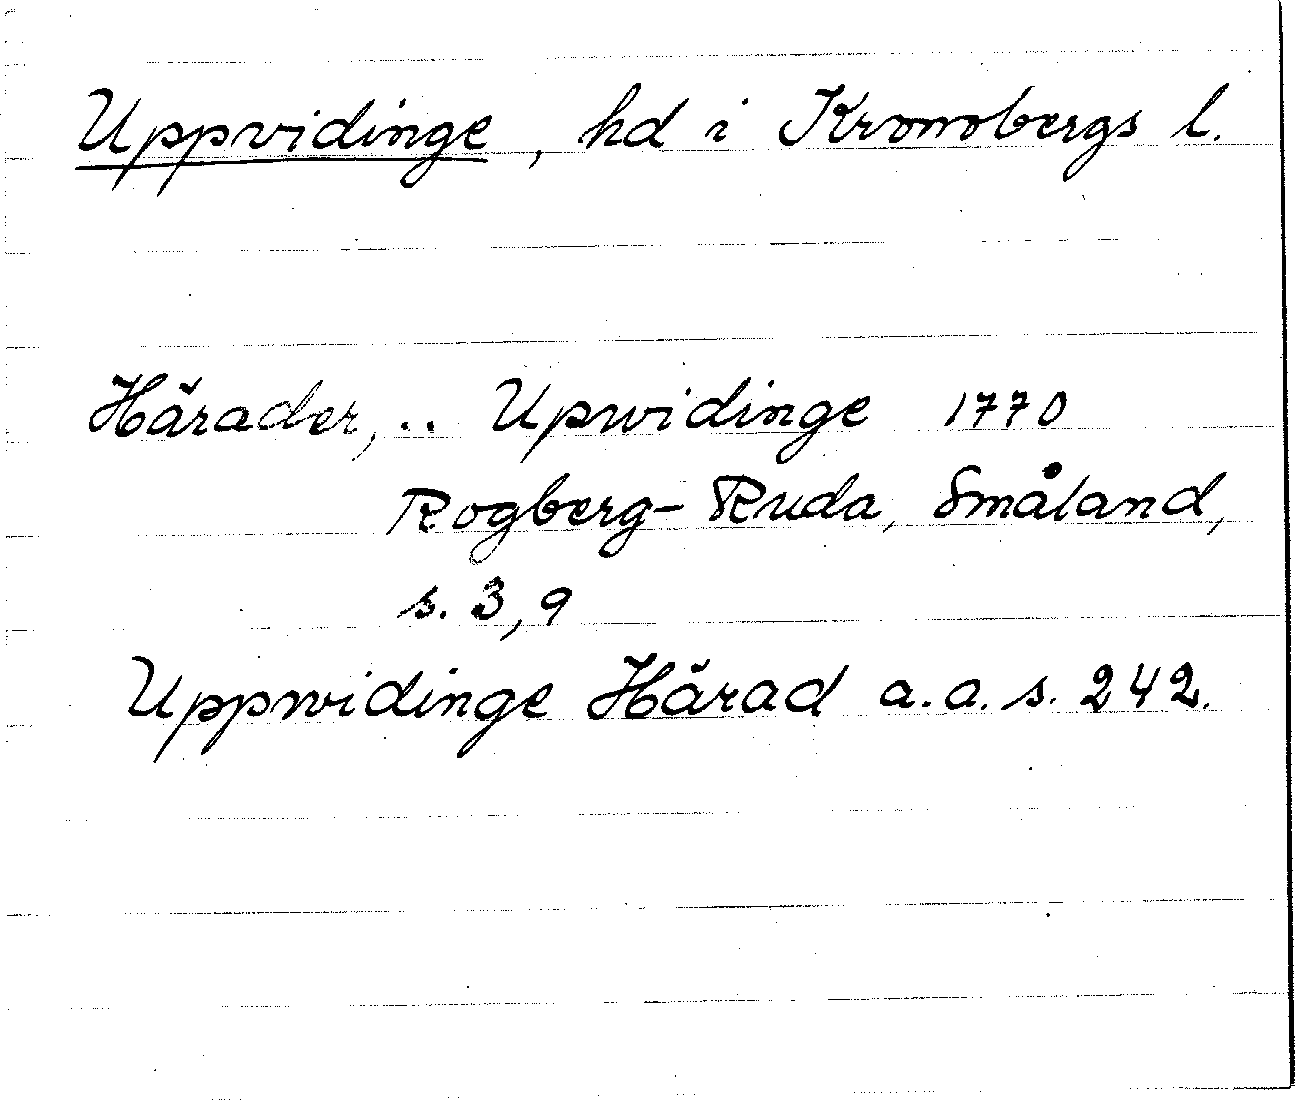 Uppvidinge, hd i Kronobergs l.
Härader, .. Upwidinge 1770
Rogberg-Ruda, Småland,
s. 3, 9
Uppwidinge Härad a.a. s. 242.